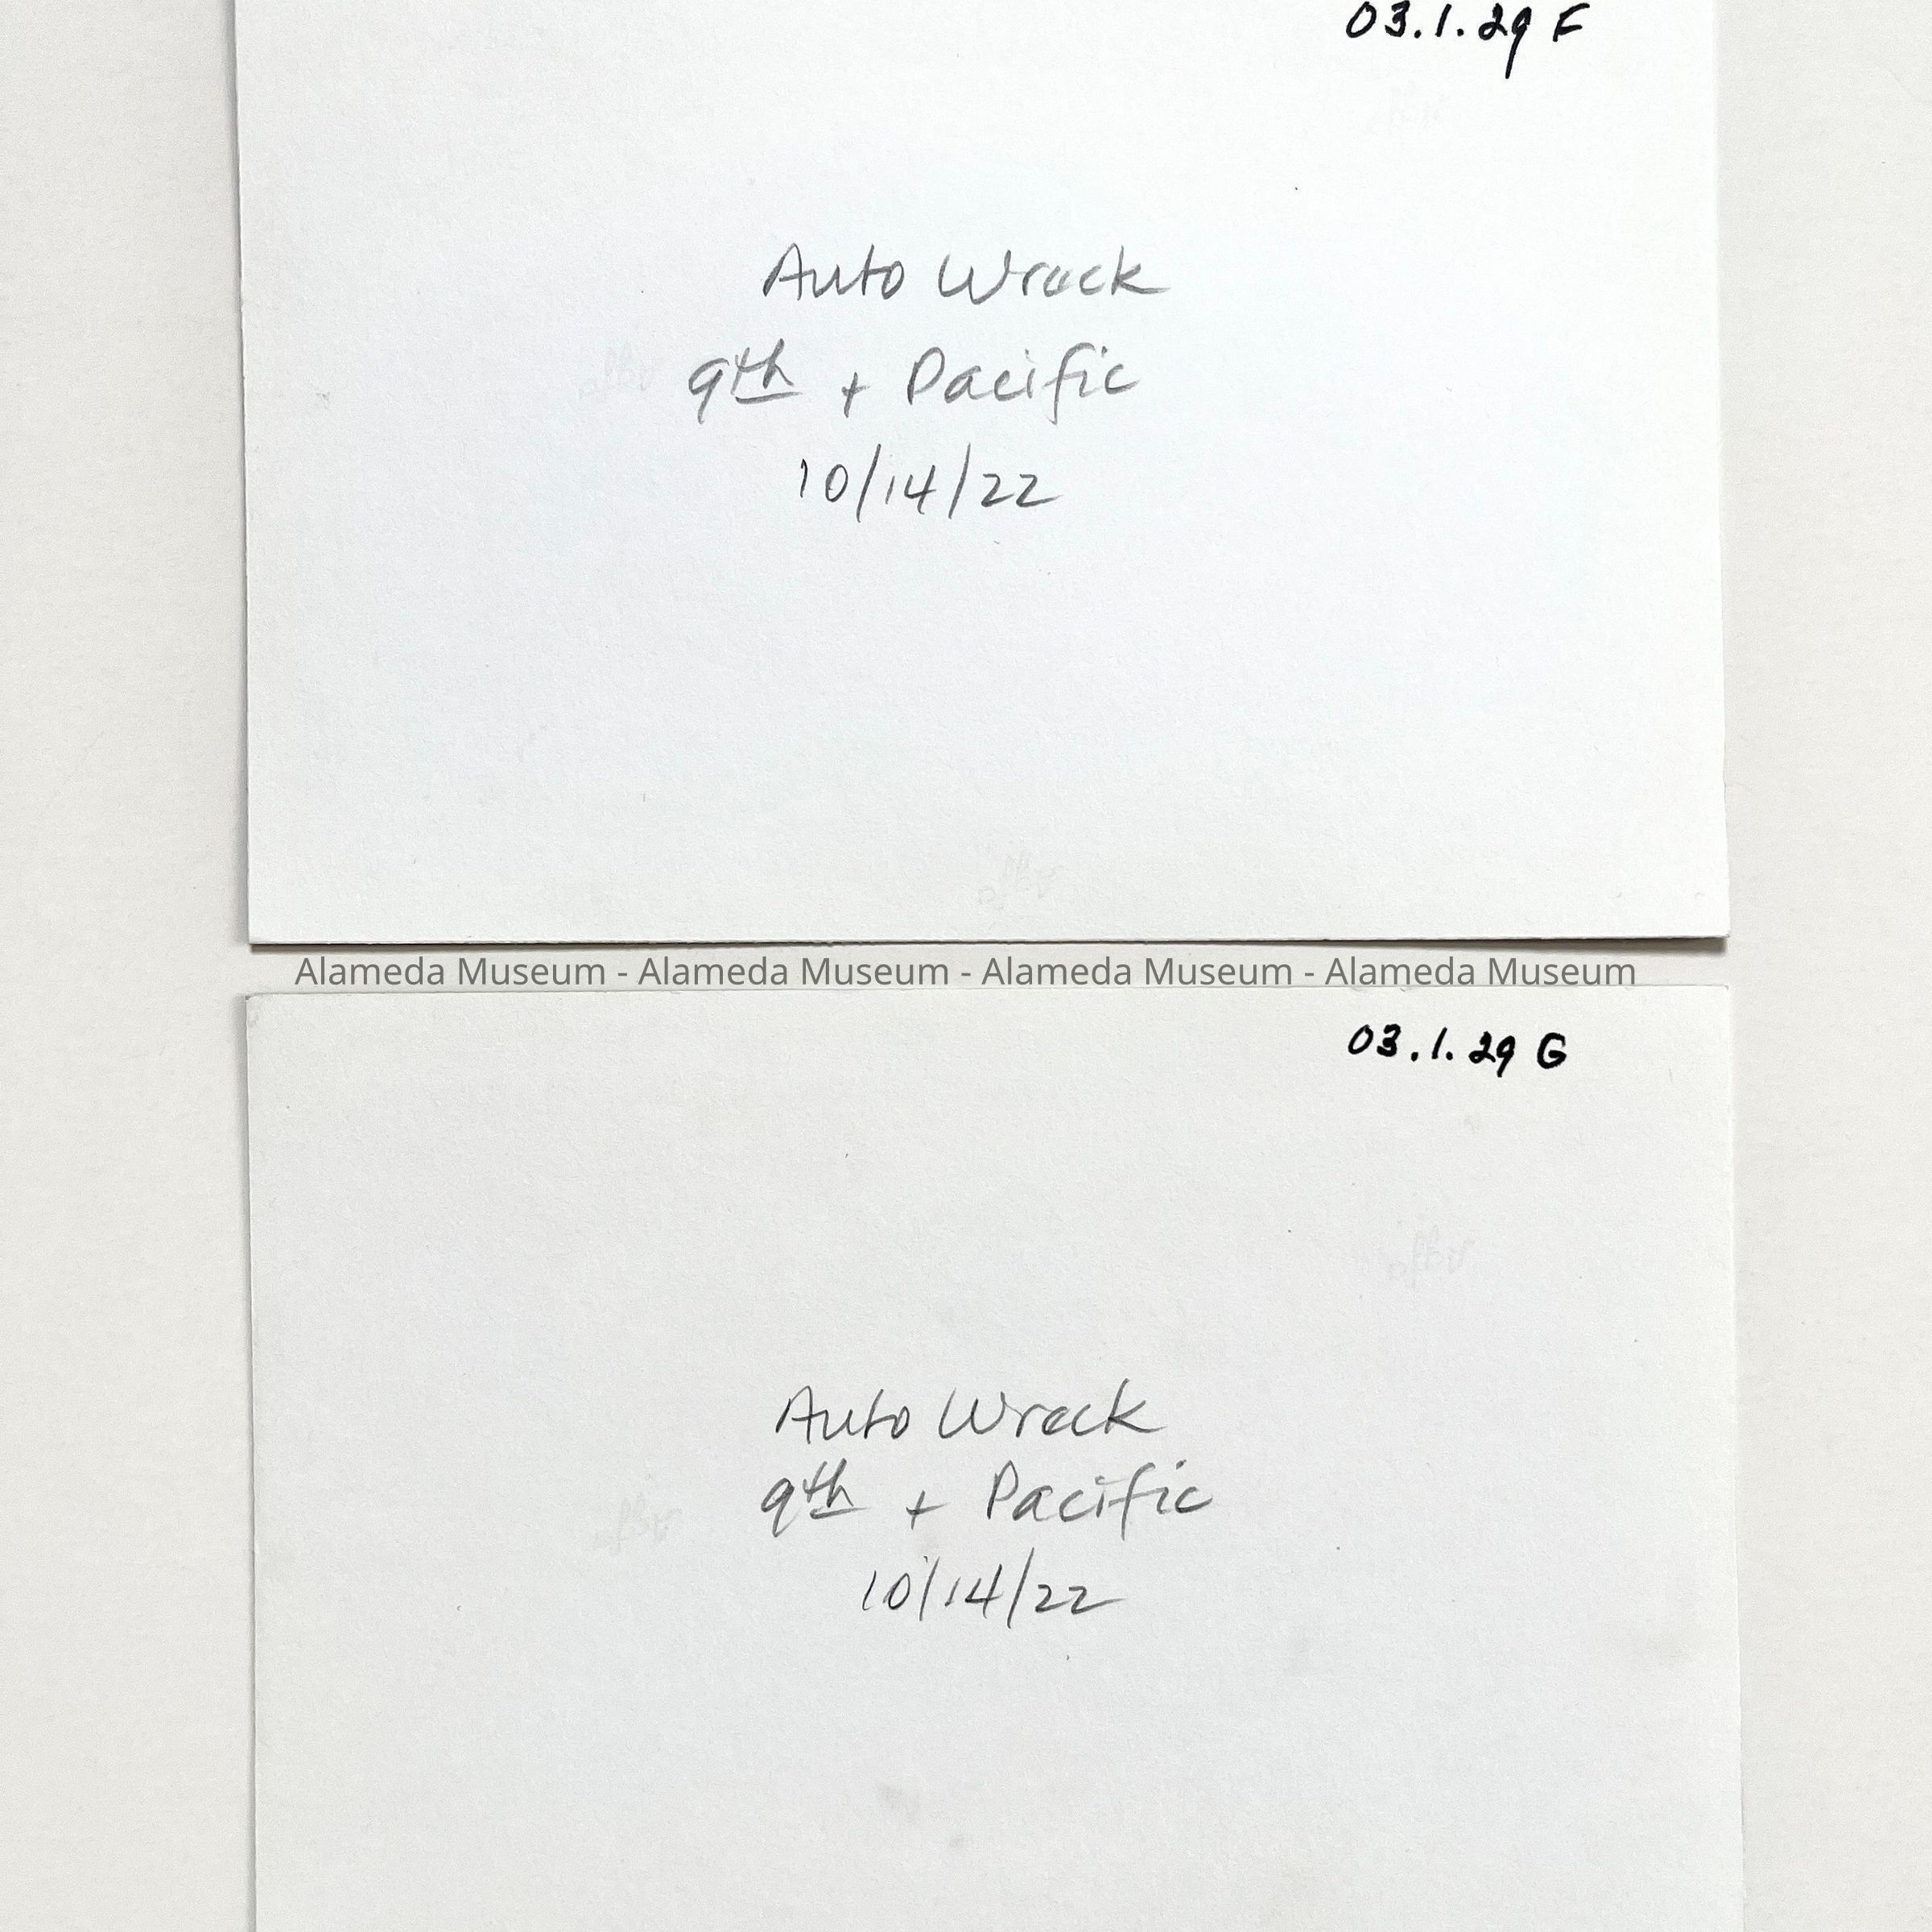 03.1.29 F
Auto Wreck
9th + Pacific
10/14/22
Alameda Museum - Alameda Museum - Alameda Museum - Alameda Museum
03.1.29 G
Auto Wreck
9th + Pacific
10/14/22